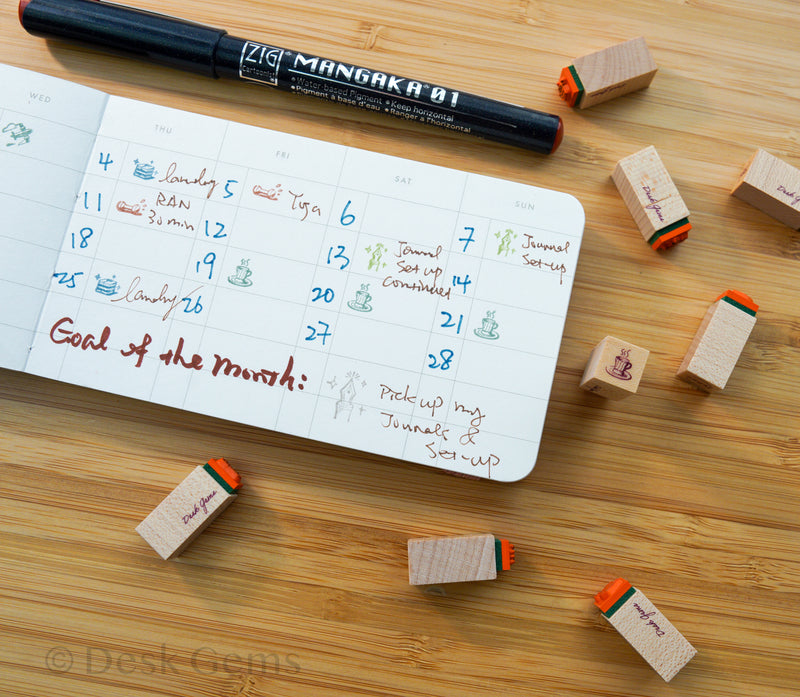 ZIG
Cartoonist
MANGAKA 01
Water-based Pigment Keep horizontal
Pigment à base d'eau Ranger à l'horizontal
WED
THU
FRI
SAT
SUN
4 landry
5 Yoga
6
7 Journal
Set-up
11 RAN
30 min
12
13 Journal
Set up
continued
14
18
19
20
21
25 landry
26
27
28
Goal of the Month:
Pick up my
Journals &
Set-up
Desk Gems
Desk Gems
Desk Gems
Desk Gems
© Desk Gems